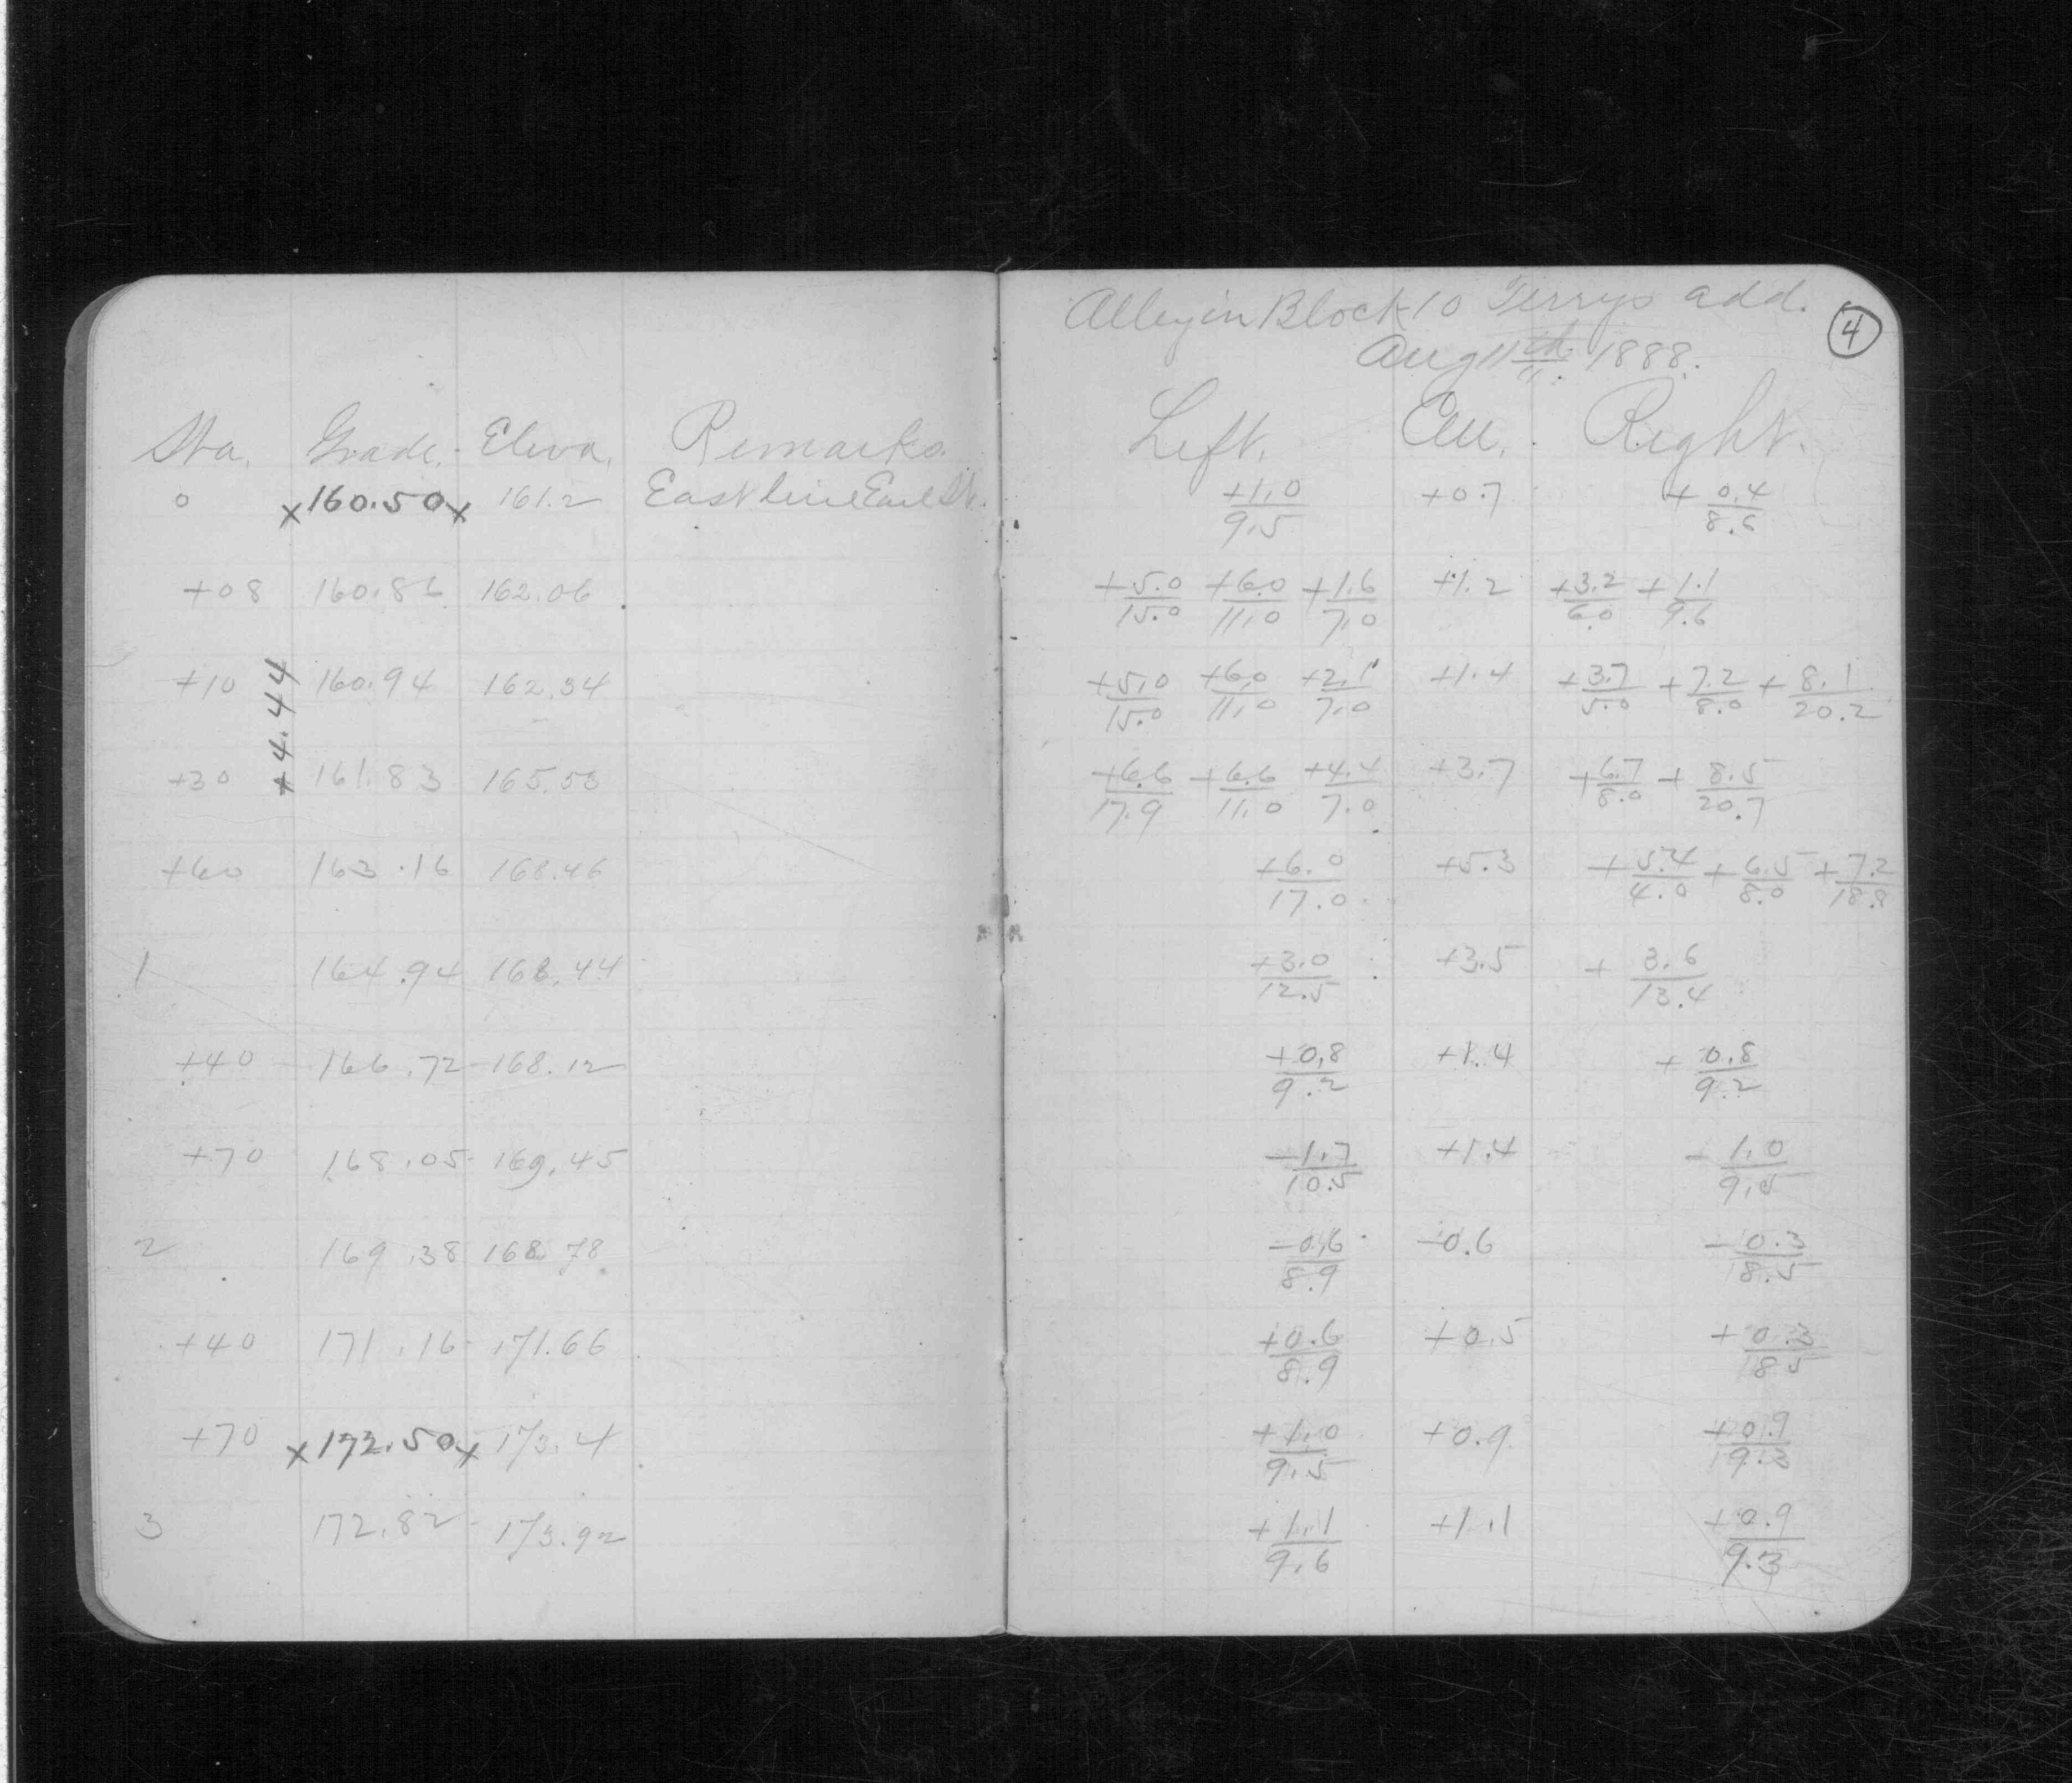 Alley in Block 10 Terrys add.
4
Aug 11th 1888.
Sta. Grade. Eleva. Remarks. Left. Cen. Right.
0 x160.50x 161.2 East line Earl St. +1.0/9.5 +0.7 +0.4/8.6
+08 160.86 162.06 +5.0/15.0 +6.0/11.0 +1.6/7.0 +1.2 +3.2/6.0 +1.1/9.6
+10 160.94 162.34 +5.0/15.0 +6.0/11.0 +2.1/7.0 +1.4 +3.7/5.0 +7.2/8.0 +8.1/20.2
+4.44
+30 161.83 165.53 +6.6/17.9 +6.6/11.0 +4.4/7.0 +3.7 +6.7/8.0 +8.5/20.7
+60 163.16 168.46 +6.0/17.0 +5.3 +5.4/4.0 +6.5/8.0 +7.2/18.8
1 164.94 168.44 +3.0/12.5 +3.5 +3.6/13.4
+40 166.72 168.12 +0.8/9.2 +1.4 +0.8/9.2
+70 168.05 169.45 -1.7/10.5 +1.4 -1.0/9.5
2 169.38 168.78 -0.6/8.9 -0.6 -0.3/8.5
+40 171.16 171.66 +0.6/8.9 +0.5 +0.3/8.5
+70 x172.50x 173.4 +1.0/9.5 +0.9 +0.9/9.3
3 172.82 173.92 +1.1/9.6 +1.1 +0.9/9.3